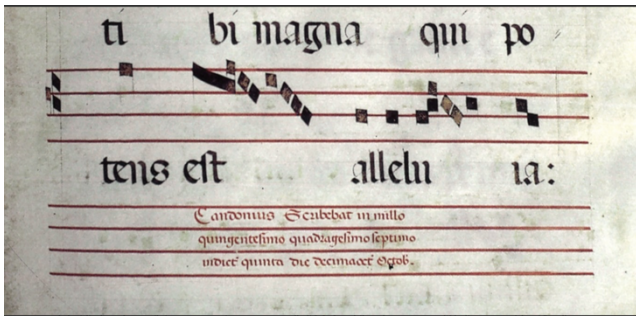 ti bi magna qui po
tens est allelu ia:
Candonius Scribebat in millo
quingentesimo quadragesimo septimo
indict quinta die Octob.